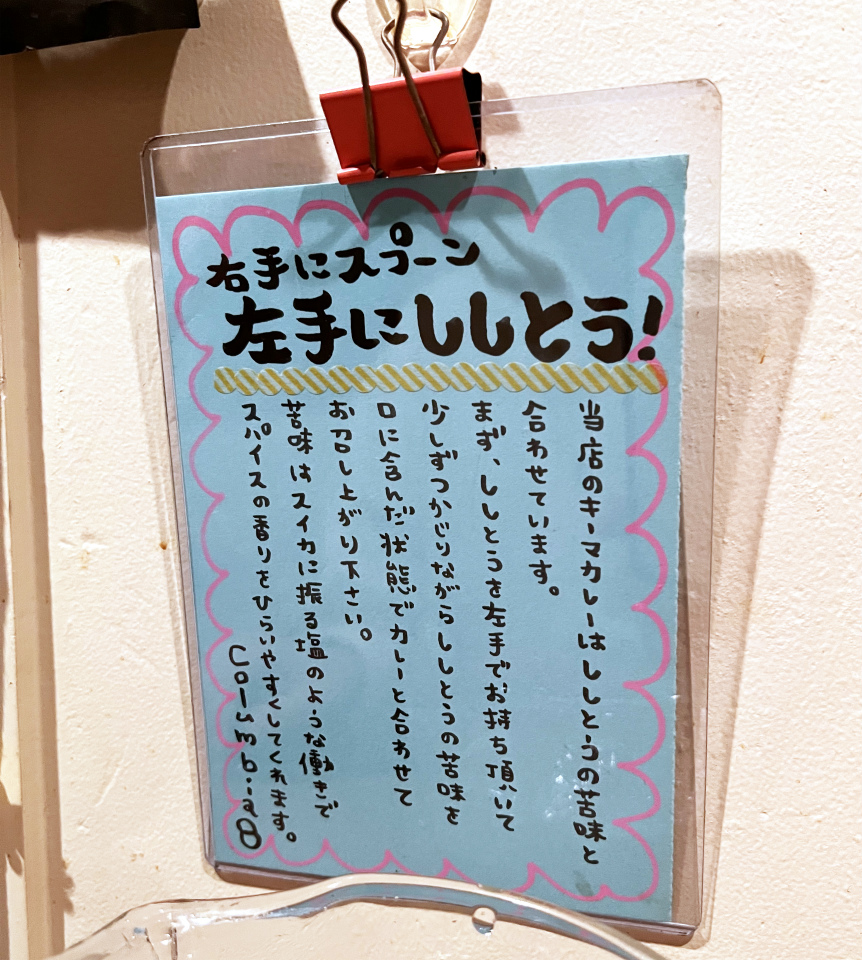 右手にスプーン
左手にししとう!
当店のキーマカレーはししとうの苦味と
合わせています。
まず、ししとうを左手でお持ち頂いて
少しずつかじりながらししとうの苦味を
口に含んだ状態でカレーと合わせて
お召し上がり下さい。
苦味はスイカに振る塩のような働きで
スパイスの香りをひらいやすくしてくれます。
Columbia8